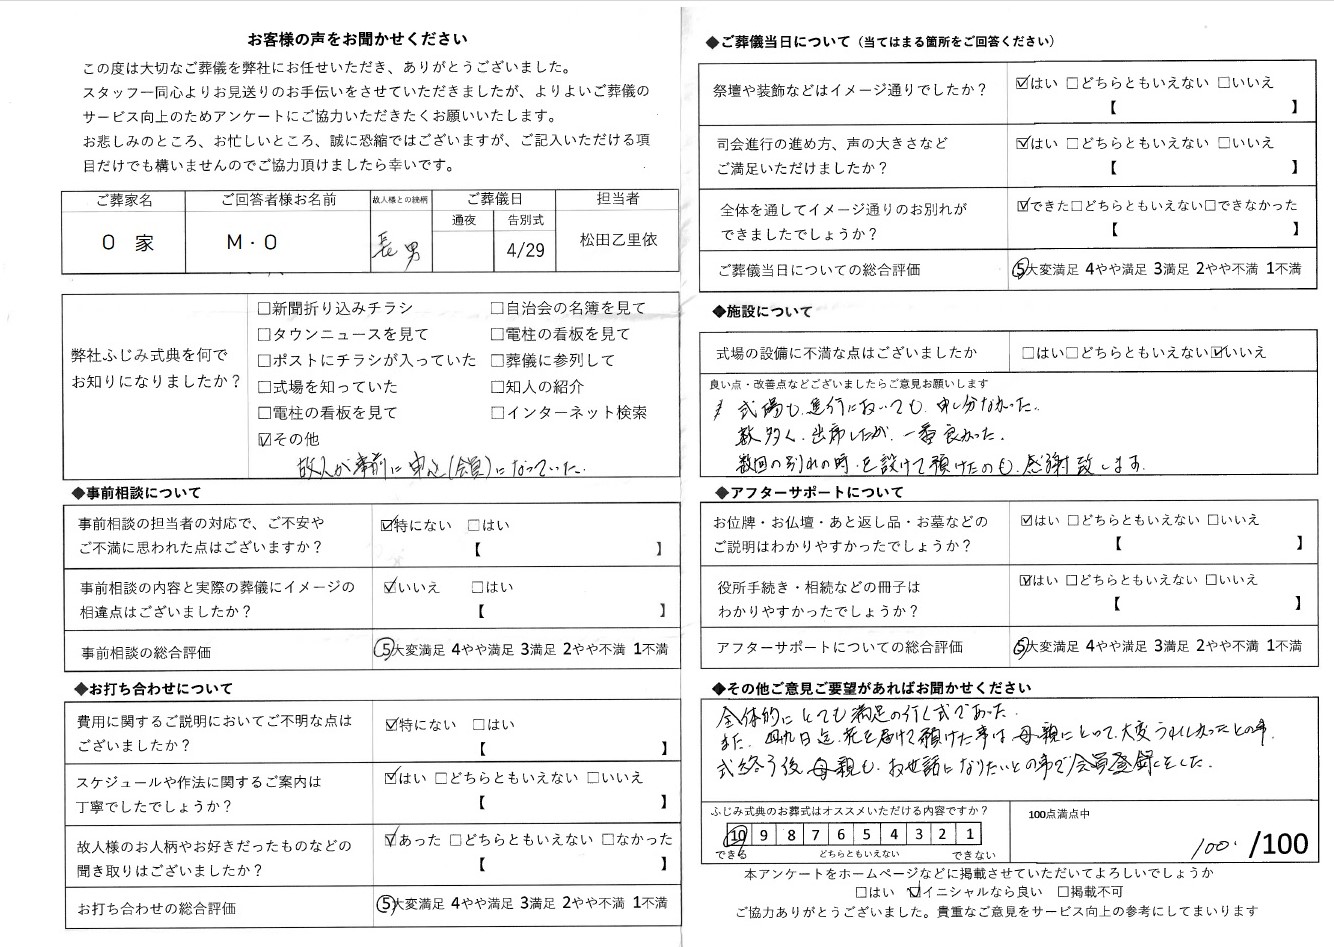 お客様の声をお聞かせください
この度は大切なご葬儀を弊社にお任せいただき、ありがとうございました。
スタッフ一同心よりお見送りのお手伝いをさせていただきましたが、よりよいご葬儀の
サービス向上のためアンケートにご協力いただきたくお願いいたします。
お悲しみのところ、お忙しいところ、誠に恐縮ではございますが、ご記入いただける項
目だけでも構いませんのでご協力頂けましたら幸いです。
ご葬家名 ご回答者様お名前 故人様との続柄 ご葬儀日 担当者
通夜 告別式
O 家 M・O 長男 4/29 松田乙里依
弊社ふじみ式典を何で
お知りになりましたか?
□新聞折り込みチラシ □自治会の名簿を見て
□タウンニュースを見て □電柱の看板を見て
□ポストにチラシが入っていた □葬儀に参列して
□式場を知っていた □知人の紹介
□電柱の看板を見て □インターネット検索
☑その他
故人が事前に申込(会員)になっていた.
◆事前相談について
事前相談の担当者の対応で、ご不安や
ご不満に思われた点はございますか?
☑特にない □はい
【 】
事前相談の内容と実際の葬儀にイメージの
相違点はございましたか?
☑いいえ □はい
【 】
事前相談の総合評価 ⑤大変満足 4やや満足 3満足 2やや不満 1不満
◆お打ち合わせについて
費用に関するご説明においてご不明な点は
ございましたか?
☑特にない □はい
【 】
スケジュールや作法に関するご案内は
丁寧でしたでしょうか?
☑はい □どちらともいえない □いいえ
【 】
故人様のお人柄やお好きだったものなどの
聞き取りはございましたか?
☑あった □どちらともいえない □なかった
【 】
お打ち合わせの総合評価 ⑤大変満足 4やや満足 3満足 2やや不満 1不満
◆ご葬儀当日について（当てはまる箇所をご回答ください）
祭壇や装飾などはイメージ通りでしたか?
☑はい □どちらともいえない □いいえ
【 】
司会進行の進め方、声の大きさなど
ご満足いただけましたか?
☑はい □どちらともいえない □いいえ
【 】
全体を通してイメージ通りのお別れが
できましたでしょうか?
☑できた□どちらともいえない□できなかった
【 】
ご葬儀当日についての総合評価 ⑤大変満足 4やや満足 3満足 2やや不満 1不満
◆施設について
式場の設備に不満な点はございましたか □はい□どちらともいえない☑いいえ
良い点・改善点などございましたらご意見お願いします
式場も進行においても、申し分なかった.
数多く、出席したが、一番良かった.
数回の別れの時を設けて頂けたのも、感謝致します.
◆アフターサポートについて
お位牌・お仏壇・あと返し品・お墓などの
ご説明はわかりやすかったでしょうか?
☑はい □どちらともいえない □いいえ
【 】
役所手続き・相続などの冊子は
わかりやすかったでしょうか?
☑はい □どちらともいえない □いいえ
【 】
アフターサポートについての総合評価 ⑤大変満足 4やや満足 3満足 2やや不満 1不満
◆その他ご意見ご要望があればお聞かせください
全体的にとても満足の行く式であった.
また、四九日迄、花を届けて頂けた事は母親にとって、大変うれしかったとの事.
式終了後、母親も、お世話になりたいとの事で会員登録をした.
ふじみ式典のお葬式はオススメいただける内容ですか? 100点満点中
10 9 8 7 6 5 4 3 2 1
できる どちらともいえない できない
100. /100
本アンケートをホームページなどに掲載させていただいてよろしいでしょうか
□はい ☑イニシャルなら良い □掲載不可
ご協力ありがとうございました。貴重なご意見をサービス向上の参考にしてまいります